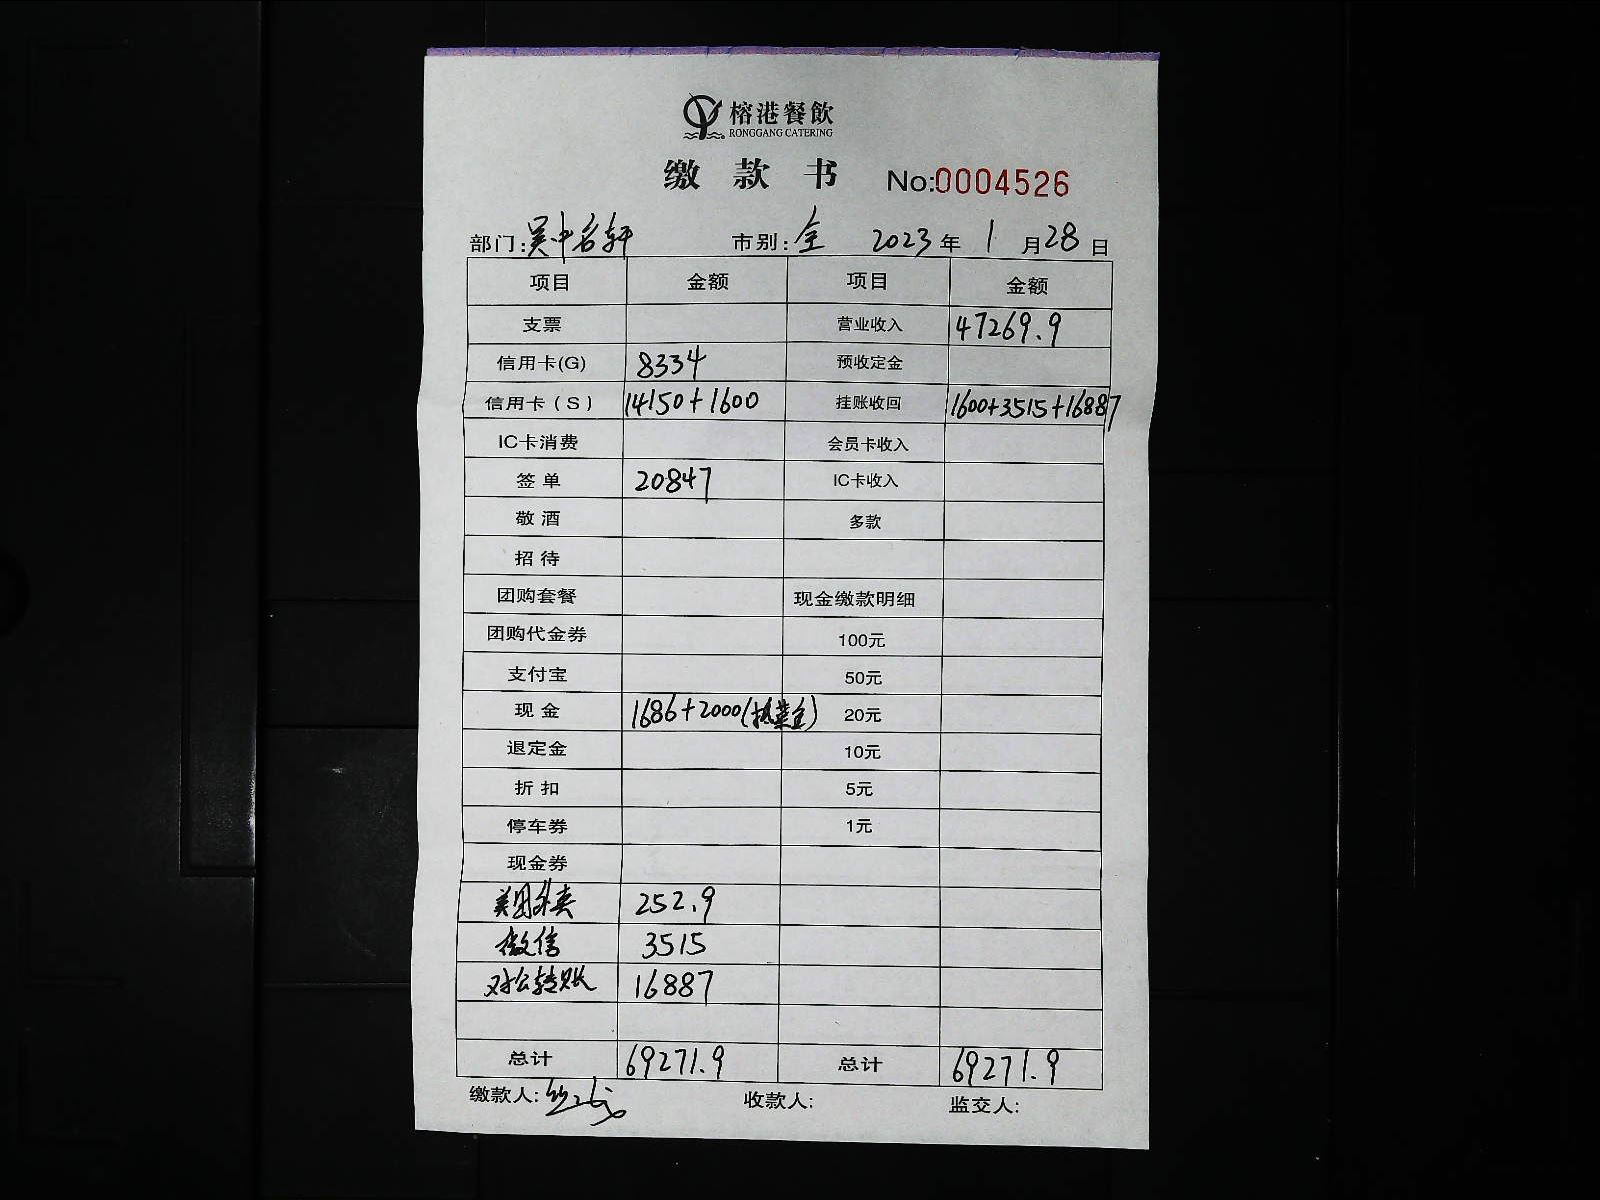 榕港餐飲
RONGGANG CATERING
缴款书 No:0004526
部门:吴中名轩 市别:全 2023年1月28日
项目 金额 项目 金额
支票 营业收入 47269.9
信用卡(G) 8334 预收定金
信用卡(S) 14150+1600 挂账收回 1600+3515+16887
IC卡消费 会员卡收入
签单 20847 IC卡收入
敬酒 多款
招待
团购套餐 现金缴款明细
团购代金券 100元
支付宝 50元
现金 1686+2000(押菜金) 20元
退定金 10元
折扣 5元
停车券 1元
现金券
美团外卖 252.9
微信 3515
对公转账 16887
总计 69271.9 总计 69271.9
缴款人: 收款人: 监交人: